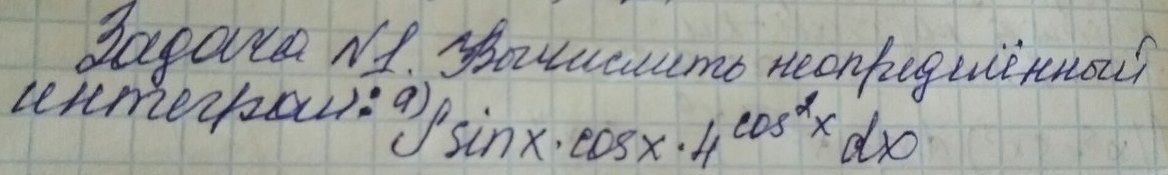 Задача №1. Вычислить неопределённый
интеграл: а) ∫ sinx · cosx · 4^cos²x dx